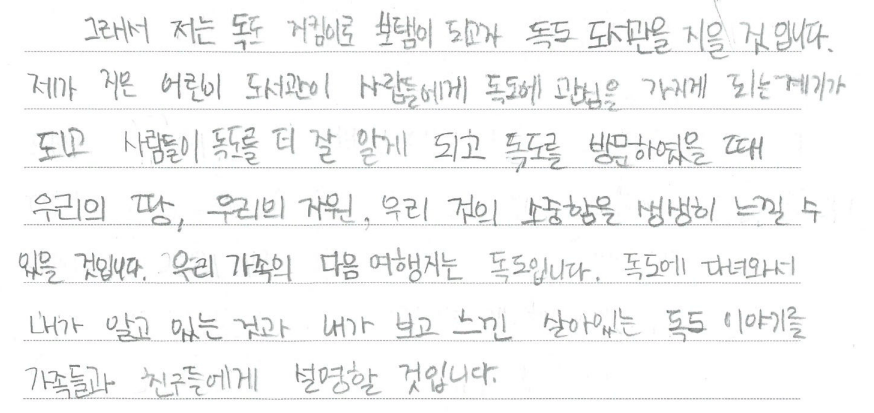 그래서 저는 독도 지킴이로 보탬이 되고자 독도 도서관을 지을 것 입니다.
제가 지은 어린이 도서관이 사람들에게 독도에 관심을 가지게 되는 계기가
되고 사람들이 독도를 더 잘 알게 되고 독도를 방문하였을 때
우리의 땅, 우리의 자원, 우리 것의 소중함을 생생히 느낄 수
있을 것입니다. 우리 가족의 다음 여행지는 독도입니다. 독도에 다녀와서
내가 알고 있는 것과 내가 보고 느낀 살아있는 독도 이야기를
가족들과 친구들에게 설명할 것입니다.